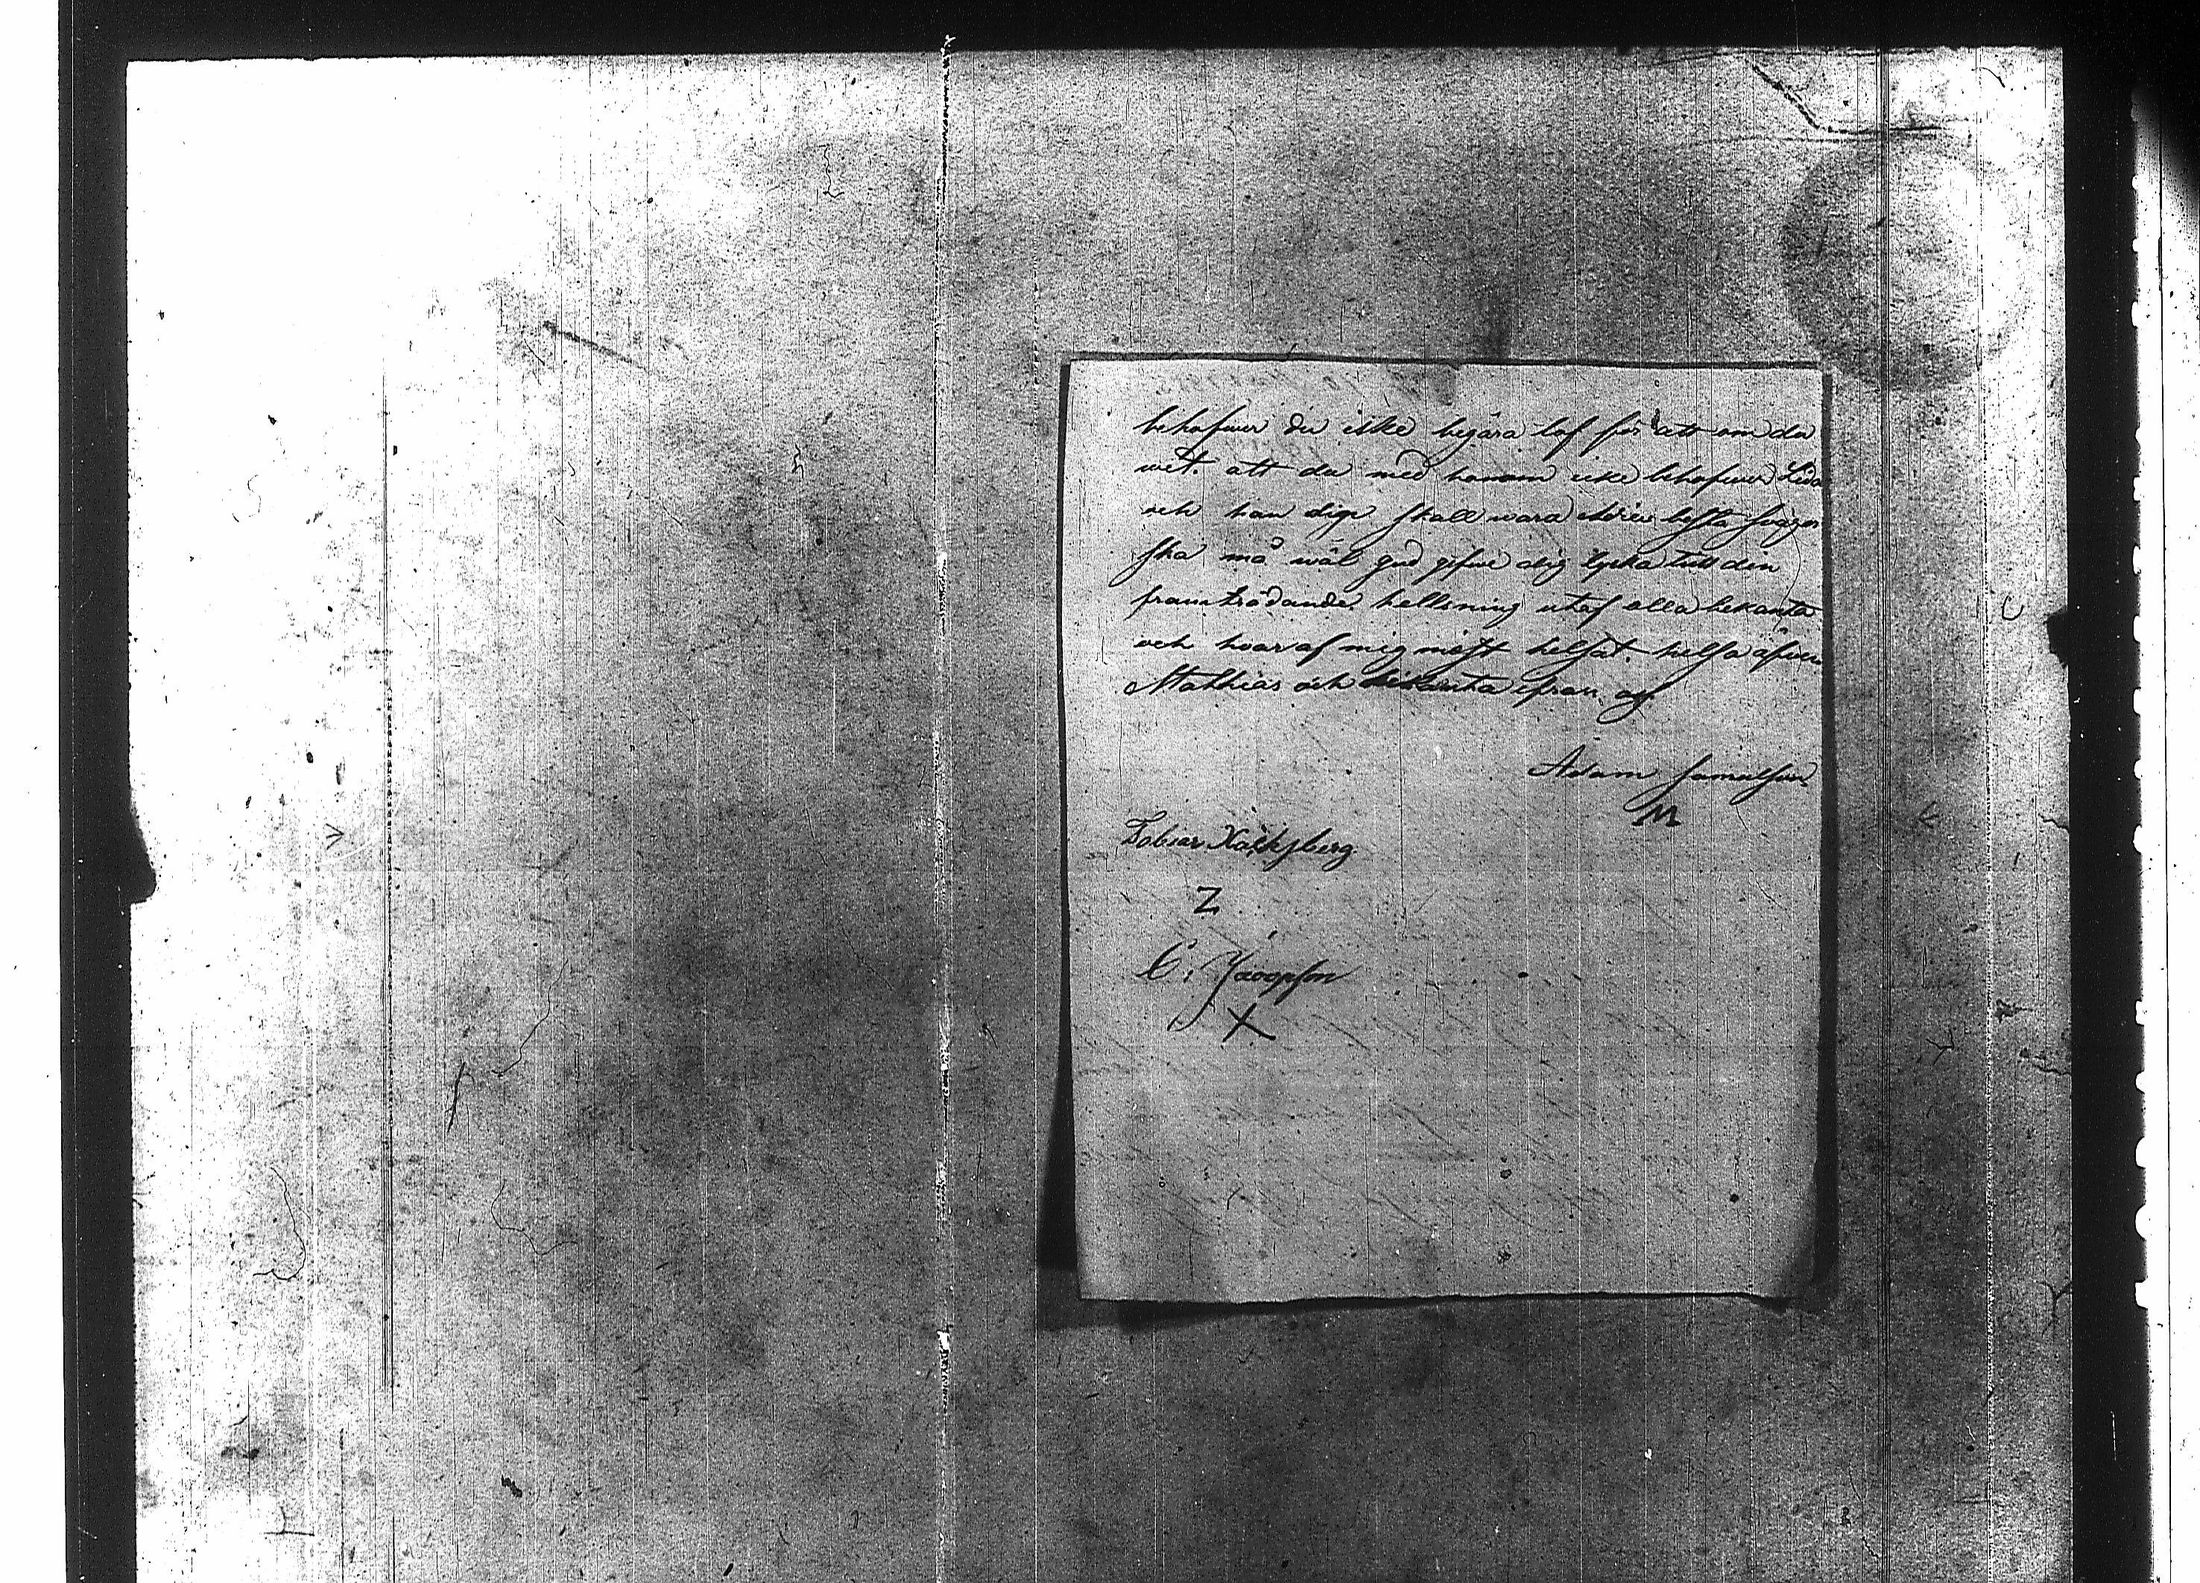 behofwer du icke begära lof för att om du
wet att du med honom icke behofwer Lida
och han dige skall wara bästa swäger
ska må wäl gud gifwe dig lycka till din
framträdande. hellsning utaf alla bekanta
och hvar af mig mäst helsat. helsa äfwen
Mathias och bekanta ifran oss
Adam Samulsson
M
Tobias Näcksberg
Z
C. Jacopson
X